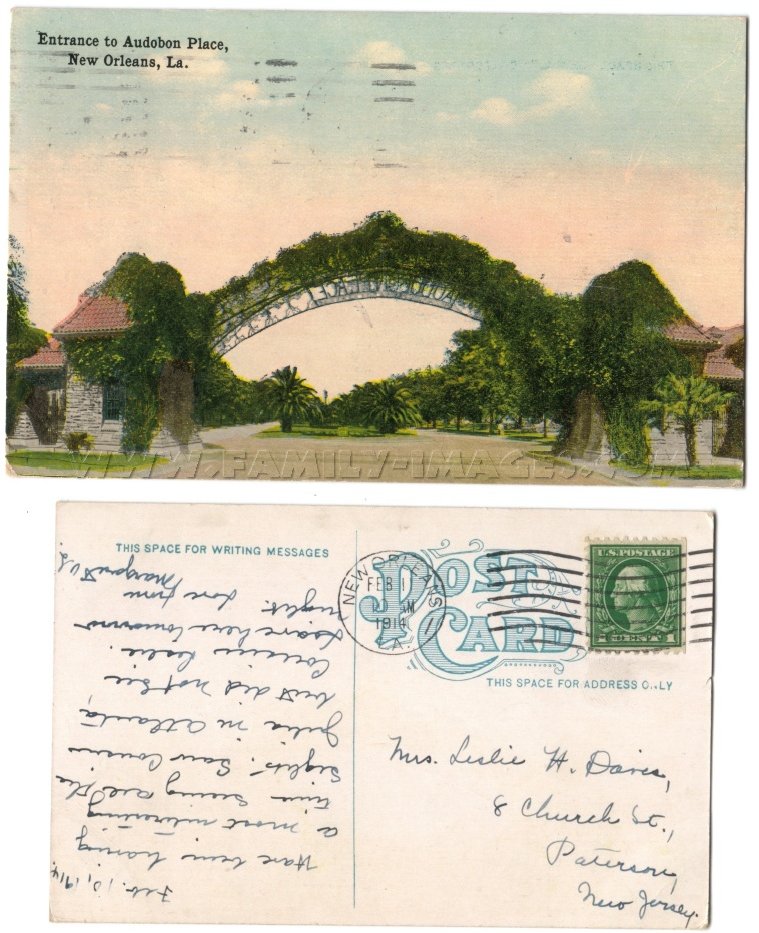 Entrance to Audobon Place,
New Orleans, La.
AUDUBON PLACE
WWW.FAMILY-IMAGES.COM
THIS SPACE FOR WRITING MESSAGES
Feb. 10, 1914.
Have been having
a most interesting
time seeing all the
sights. Saw Cousin
Julia in Atlanta,
but did not see
Cousin Leslie.
Leave here tomorrow
night. Love from
Margaret
POST
CARD
NEW ORLEANS
FEB 1
M
1914
LA.
U.S. POSTAGE
1 CENT 1
THIS SPACE FOR ADDRESS ONLY
Mrs. Leslie H. Davis,
8 Church St.,
Paterson,
New Jersey.